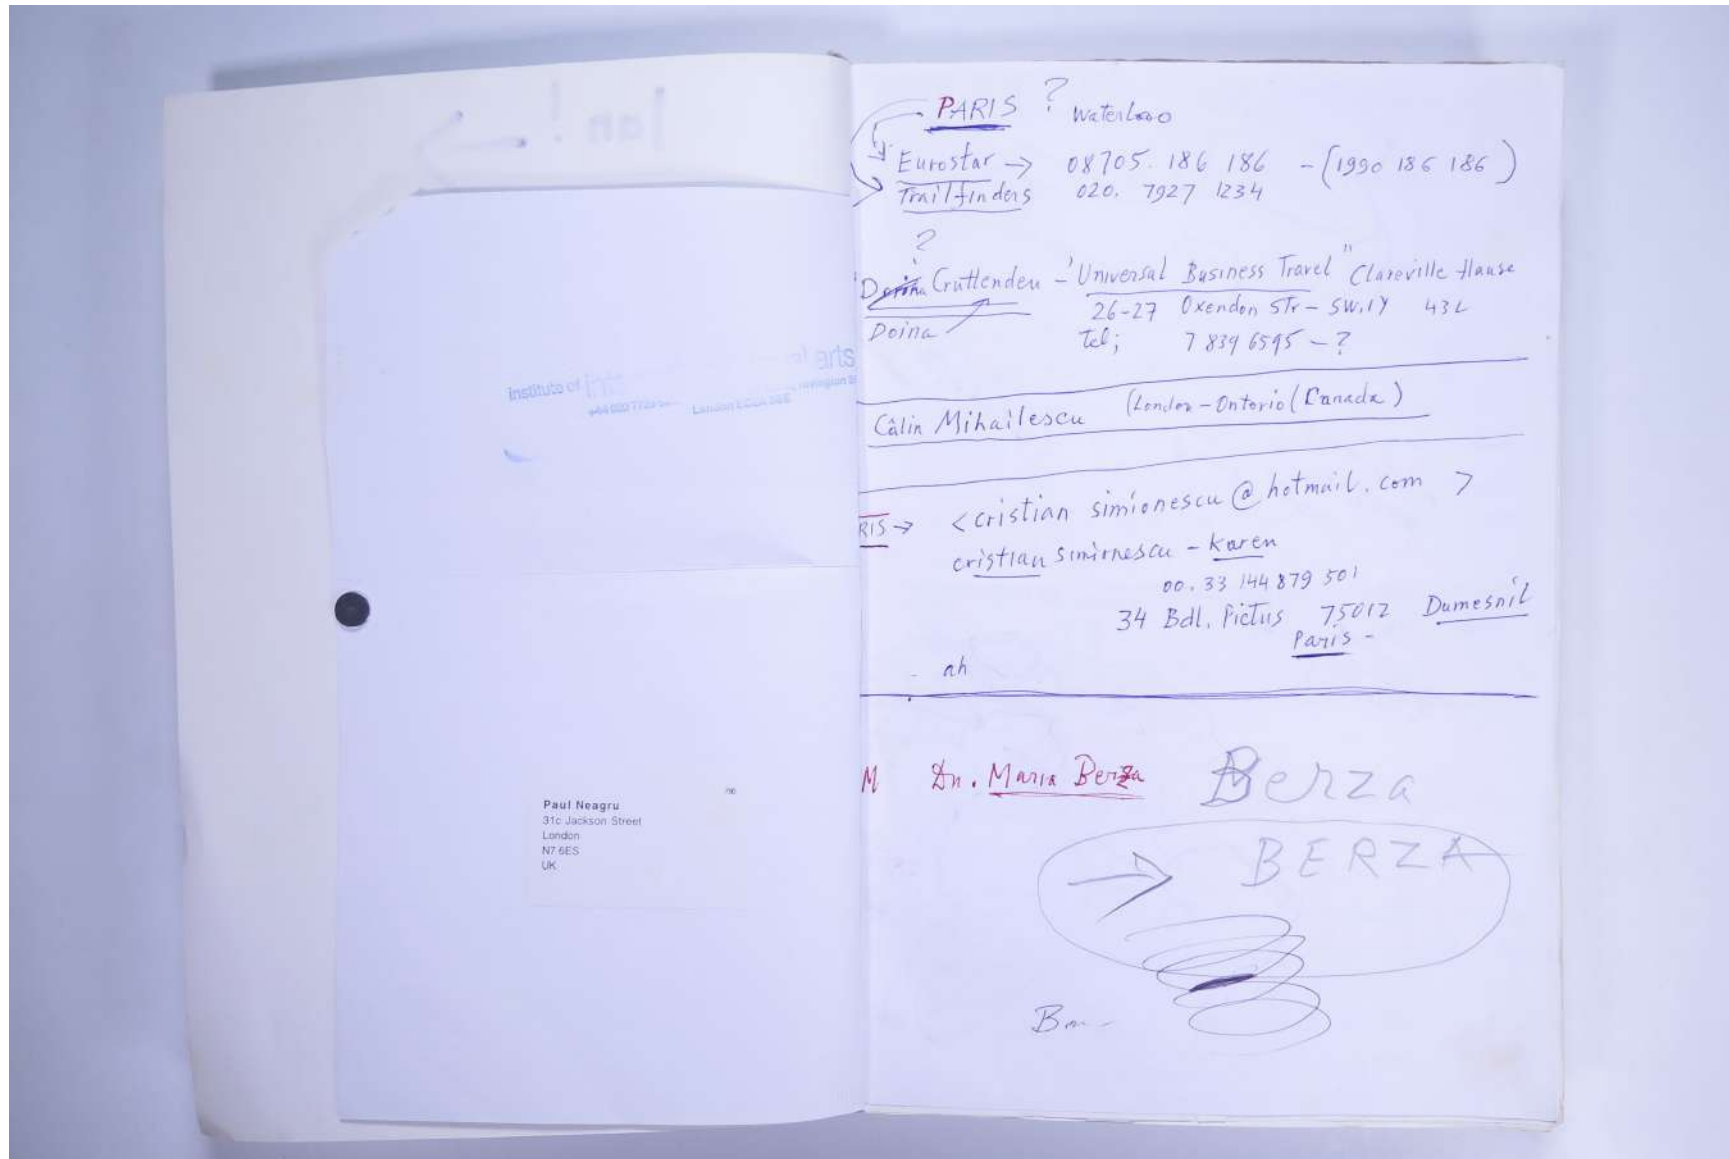 institute of arts
London
Paul Neagru
31c Jackson Street
London
N7 6ES
UK
PARIS ? Waterloo
Eurostar → 08705. 186 186 - (1990 186 186)
Trailfinders 020. 7927 1234
?
Cruttenden - 'Universal Business Travel" Clareville Hause
Doina 26-27 Oxendon Str - SW.1Y 43L
Tel; 7 839 6595 - ?
Câlin Mihailescu (London - Ontorio (Canada)
RIS → <cristian simionescu@hotmail.com >
cristian simirnescu - Karen
00. 33 144 879 501
34 Bdl. Pictus 75012 Dumesnil
Paris -
- ah
M Dn. Maria Berza Berza
→ BERZA